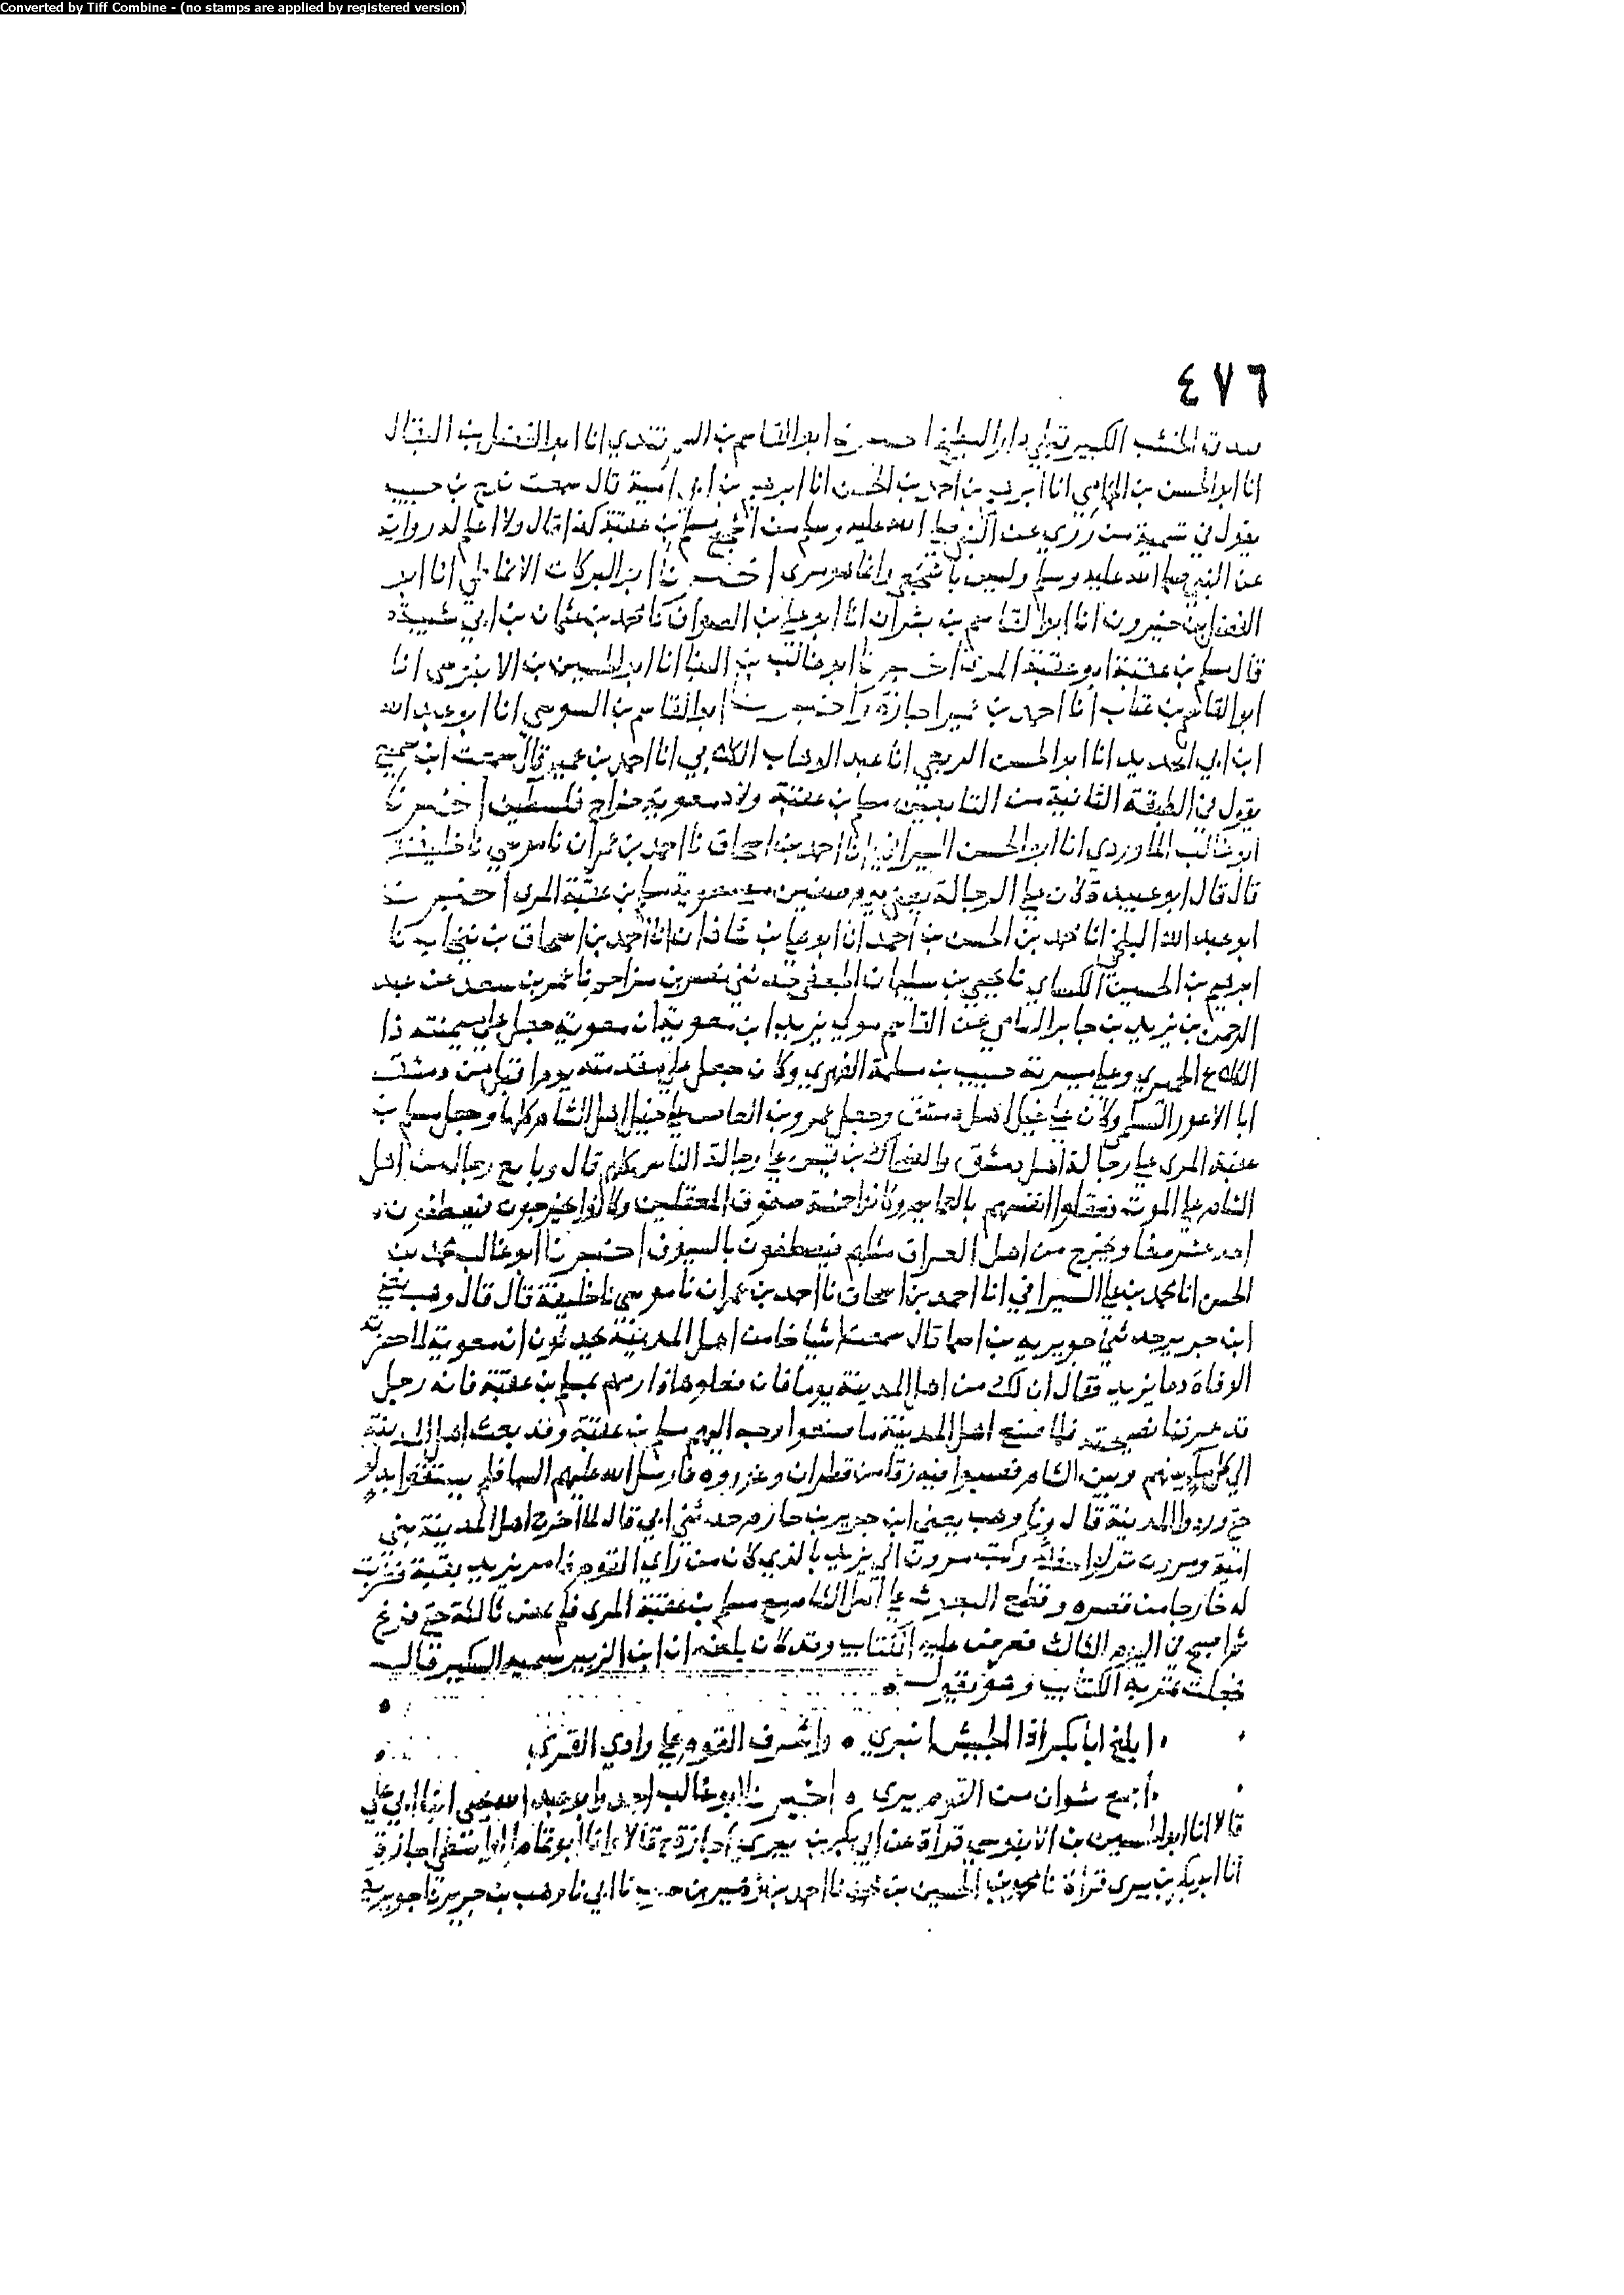 Converted by Tiff Combine - (no stamps are applied by registered version)
٤٧٦
الخشب الكبير قبلي دار البطيخ اخبرنا ابو القاسم بن السمرقندي انا ابو الفضل بن البقال
انا ابو الحسن بن الحمامي انا ابرهيم بن احمد بن الحسن انا ابرهيم بن ابي امية قال سمعت نوح بن حبيب
يقول في تسمية من روي عن النبي صلي الله عليه وسلم من اشجع مسلم بن عقبة كذا قال ولا اعلم له رواية
عن النبي صلي الله عليه وسلم وليس باشجعي وانما هو مري اخبرنا ابو البركات الانماطي انا ابو
الفضل بن خيرون انا ابو القاسم بن بشران انا ابو علي بن الصواف نا محمد بن عثمان بن ابي شيبة
قال مسلم بن عقبة ابو عقبة المري اخبرنا ابو غالب بن البنا انا ابو الحسين بن الابنوسي انا
ابو القاسم بن عتاب انا احمد بن عمير اجازة واخبرنا ابو القاسم بن السوسي انا ابو عبد الله
ابن ابي الحديد انا ابو الحسن الربعي انا عبد الوهاب الكلابي انا احمد بن عمير قال سمعت ابن سميع
يقول في الطبقة الثانية من التابعين مسلم بن عقبة ولاه معوية خراج فلسطين اخبرنا
ابو غالب الماوردي انا ابو الحسن السيرافي انا احمد بن اسحاق نا احمد بن عمران نا موسي نا خليفة
قال قال ابو عبيدة كان علي الرجالة يعني يوم صفين مع معوية مسلم بن عقبة المري اخبرنا
ابو عبد الله البلخي انا محمد بن الحسن بن احمد انا ابو علي بن شاذان انا احمد بن اسحاق بن نيخاب نا
ابرهيم بن الحسين الكسائي نا يحيي بن سليمان الجعفي حدثني نصر بن مزاحم نا عمر بن سعد عن عبد
الرحمن بن يزيد بن جابر الشامي عن القاسم مولي يزيد ابن معوية ان معوية جعل علي ميمنته ذا
الكلاع الحميري وعلي ميسرته حبيب بن مسلمة الفهري وكان جعل علي مقدمته يوم اقبل من دمشق
ابا الاعور السلمي وكان علي خيل اهل دمشق وجعل عمرو بن العاص علي خيل اهل الشام كلها وجعل مسلم بن
عقبة المري علي رجالة اهل دمشق والضحاك بن قيس علي رجالة الناس كلهم قال وبايع رجال من اهل
الشام علي الموت فعقلوا انفسهم بالعمايم وكانوا خمسة صفوف المعقلين وكانوا يخرجون فيصطفون
احد عشر صفا ويخرج من اهل العراق مثلهم فيصطفون بالسيوف اخبرنا ابو غالب محمد بن
الحسن انا محمد بن علي السيرافي انا احمد بن اسحاق نا احمد بن عمران نا موسي نا خليفة قال قال وهب يعني
ابن جرير حدثني جويرية بن اسما قال سمعت اشياخا من اهل المدينة يحدثون ان معوية لما حضرته
الوفاة دعا يزيد فقال ان لك من اهل المدينة يوما فان فعلوها فارمهم بمسلم بن عقبة فانه رجل
قد عرفنا نصيحته فلما صنع اهل المدينة ما صنعوا وجه اليهم مسلم بن عقبة وقد بعث اهل المدينة
الي كل بينهم وبين الشام فصبوا فيه زقا من قطران وعوروه فارسل الله عليهم السما فلم يستقوا بدلو
حتي وردوا المدينة قال ونا وهب يعني ابن جرير بن حازم حدثني ابي قال لما اخرج اهل المدينة بني
امية ومروان وكتب مروان الي يزيد بالذي كان من راي القوم فامر يزيد بقبة فضربت
له خارجا من قصره وقطع البعوث علي اهل الشام مع مسلم بن عقبة المري فلم تمض ثالثة حتي فرغ
ثم اصبح في اليوم الثالث فعرض عليه الكتايب وقد كان بلغه ان ابن الزبير سميه السكير قال
فجعلت تمر به الكتايب وهو يقول
ابلغ ابا بكر اذا الجيش انبري واشرف القوم علي وادي القري
اجمع نشوان من القوم يري اخبرنا ابو غالب احمد وابو عبد الله يحيي ابنا ابي علي
قالا انا ابو الحسين بن الابنوسي قراة عن ابي بكر بن بيري اجازة قالا وانا ابو تمام اجازة
انا ابو بكر بن بيري قراة نا محمد بن الحسين بن نا احمد بن زهير بن حرب نا ابي نا وهب بن جرير نا جويرية